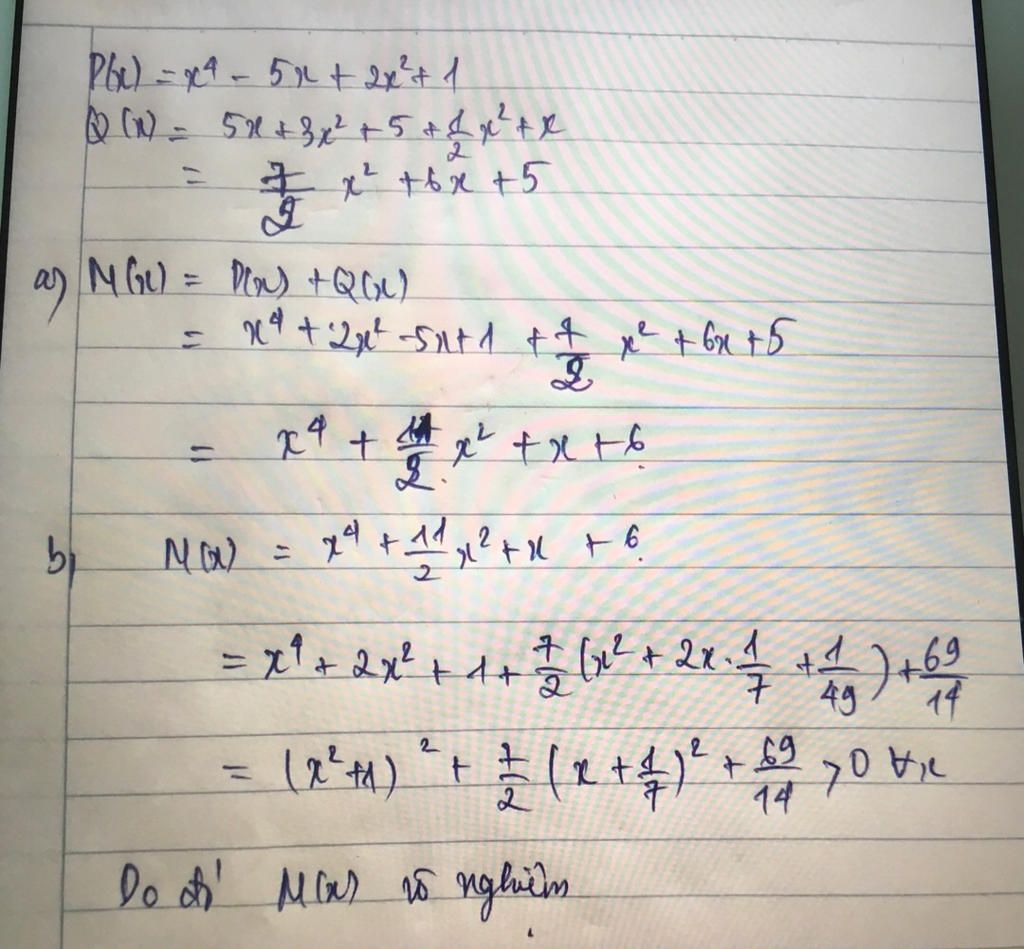 P(x) = x⁴ - 5x + 2x² + 1
Q(x) = 5x + 3x² + 5 + 1/2 x² + x
= 7/2 x² + 6x + 5
a) M(x) = P(x) + Q(x)
= x⁴ + 2x² - 5x + 1 + 7/2 x² + 6x + 5
= x⁴ + 11/2 x² + x + 6.
b) M(x) = x⁴ + 11/2 x² + x + 6.
= x⁴ + 2x² + 1 + 7/2 (x² + 2x . 1/7 + 1/49) + 69/14
= (x² + 1)² + 7/2 (x + 1/7)² + 69/14 > 0 ∀x
Do đó M(x) vô nghiệm